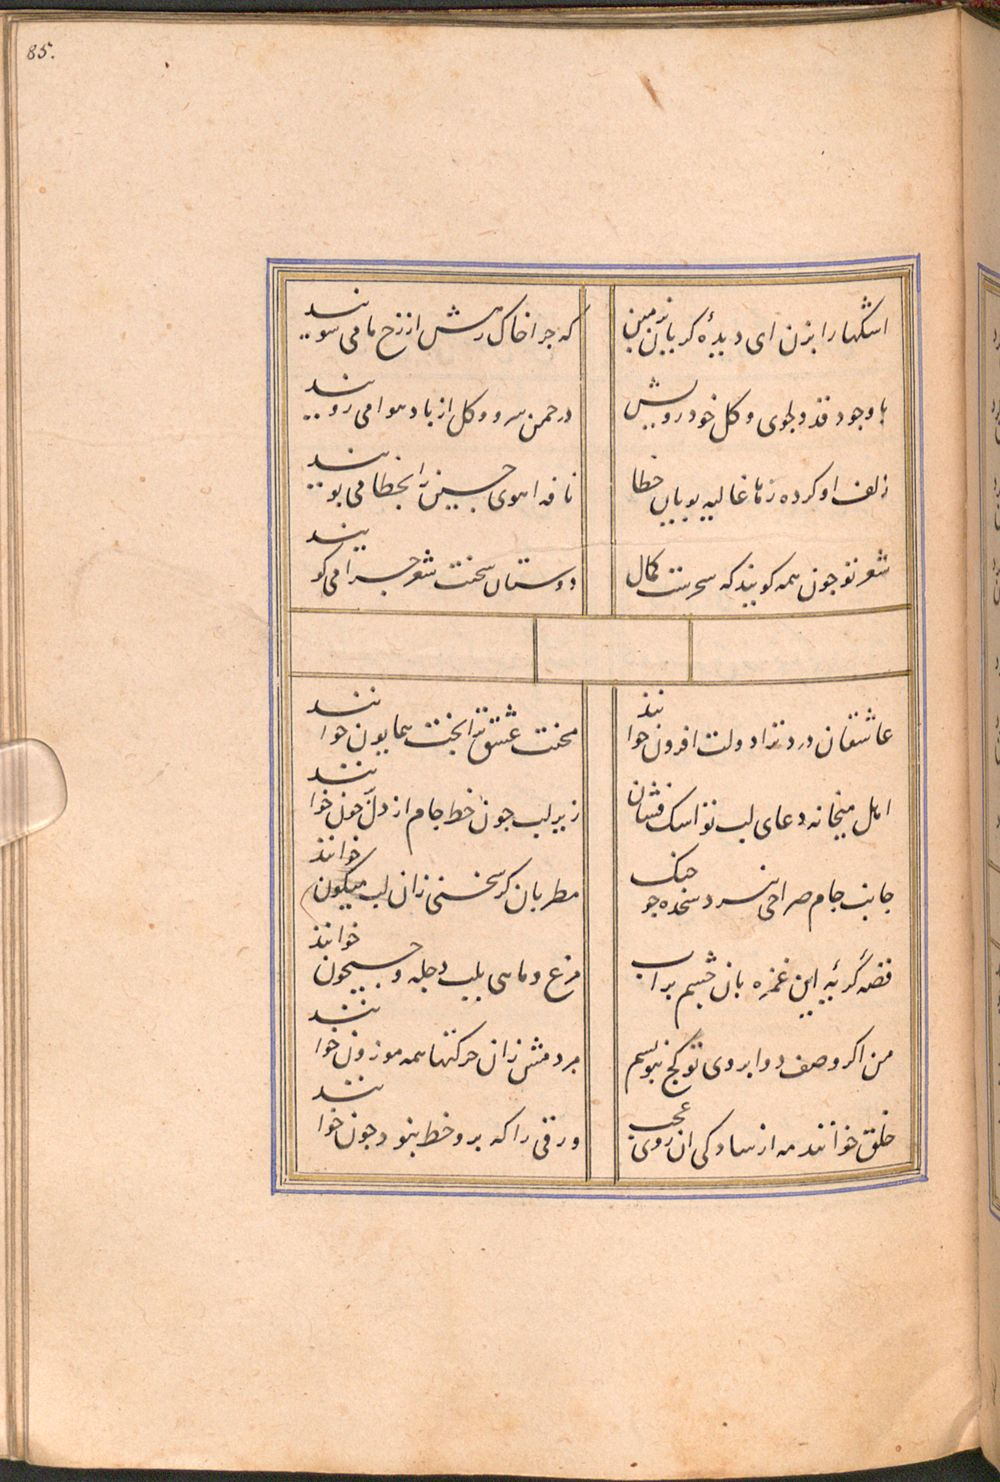 85.
اشکها را بزن ای دیدۀ کریان بزمین
که جرا خاک رهش از رخ ما می شویند
با وجود قد دلجوی و کل خودرویش
در جمن سرو و کل از باد هوا می رویند
زلف او کرده رها غالیه بویان خطا
نافه اهوی جین را بخطا می بویند
شعر تو جون همه کویند که سحرست کمال
دوستان سخنت شعر جرا می کویند
عاشقان درد ترا دولت افزون خوانند
محنت عشق ترا بخت همایون خوانند
اهل میخانه دعای لب تو اشک فشان
زیر لب جون خط جام از دل جون خوانند
جانب جام صراحی بنهد سجده جو جنک
مطربان کر سخنی زان لب میکون خوانند
قصۀ کریۀ این غمزه بان چشم براب
مرغ و ماهی بلب دجله و جیحون خوانند
من اکر وصف دو ابروی تو کج بنویسم
مردمش زان حرکتها همه موزون خوانند
خلق خوانند مه از سادکی ان روی عجب
ورقی را که برو خط نبود جون خوانند